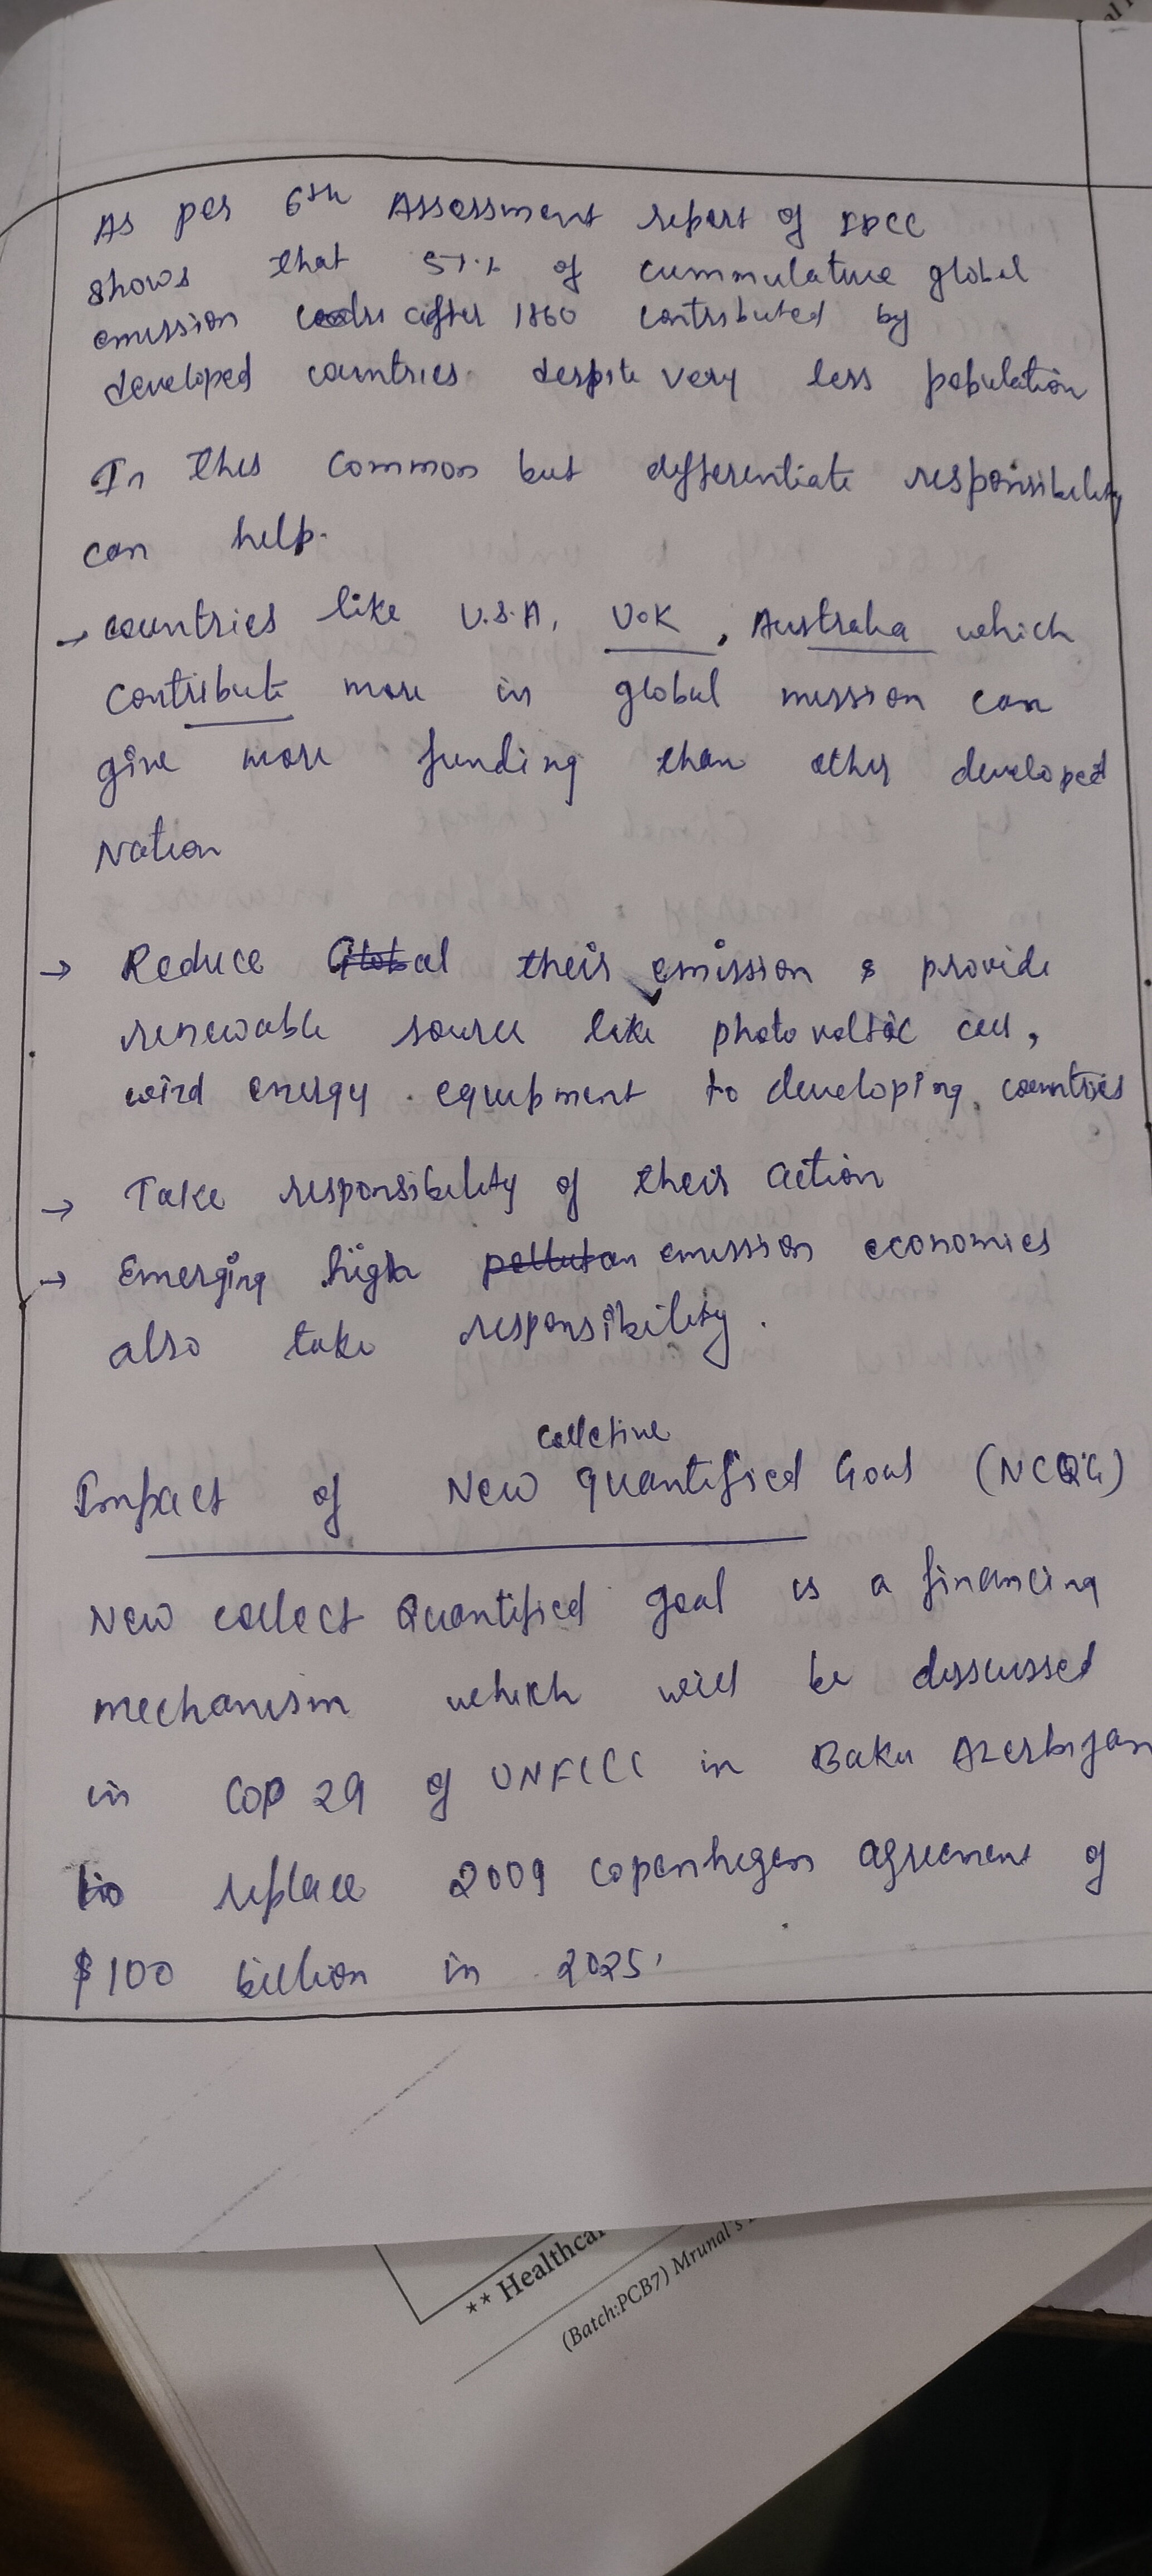 As per 6th Assessment report of IPCC
shows that 57% of cummulative global
emission after 1860 contributed by
developed countries despite very less population
In this common but differentiate responsibility
can help.
→ countries like U.S.A, U.K, Australia which
contribute more in global mission can
give more funding than other developed
Nation
→ Reduce their emission & provide
renewable source like photo voltaic cell,
wind energy equipment to developing countries
→ Take responsibility of their action
→ Emerging high emission economies
also take responsibility.
collective
Impact of New Quantified Goal (NCQG)
New collect Quantified goal is a financing
mechanism which will be disscussed
in COP 29 of UNFCCC in Baku Azerbijan
to replace 2009 copenhegen agreement of
$100 billion in 2025.
** Healthca
(Batch:PCB7) Mrunal's